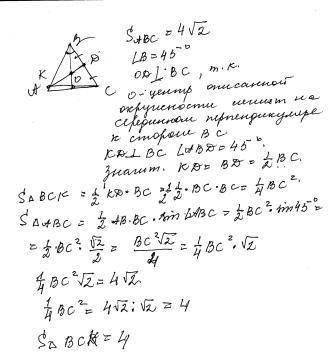 B
K
D
A
O
C
S_ABC = 4√2
∠B = 45°
OD ⊥ BC, т.к.
O-центр описанной
окружности лежит на
серединном перпендикуляре
к стороне BC
KD ⊥ BC ∠ABD = 45°.
значит. KD = BD = 1/2 BC.
S△BCK = 1/2 KD · BC = 1/2 · 1/2 · BC · BC = 1/4 BC².
S△ABC = 1/2 AB · BC · sin∠ABC = 1/2 BC² · sin 45° =
= 1/2 BC² · √2/2 = BC²√2/4 = 1/4 BC² · √2
1/4 BC²√2 = 4√2
1/4 BC² = 4√2 : √2 = 4
S△BCK = 4